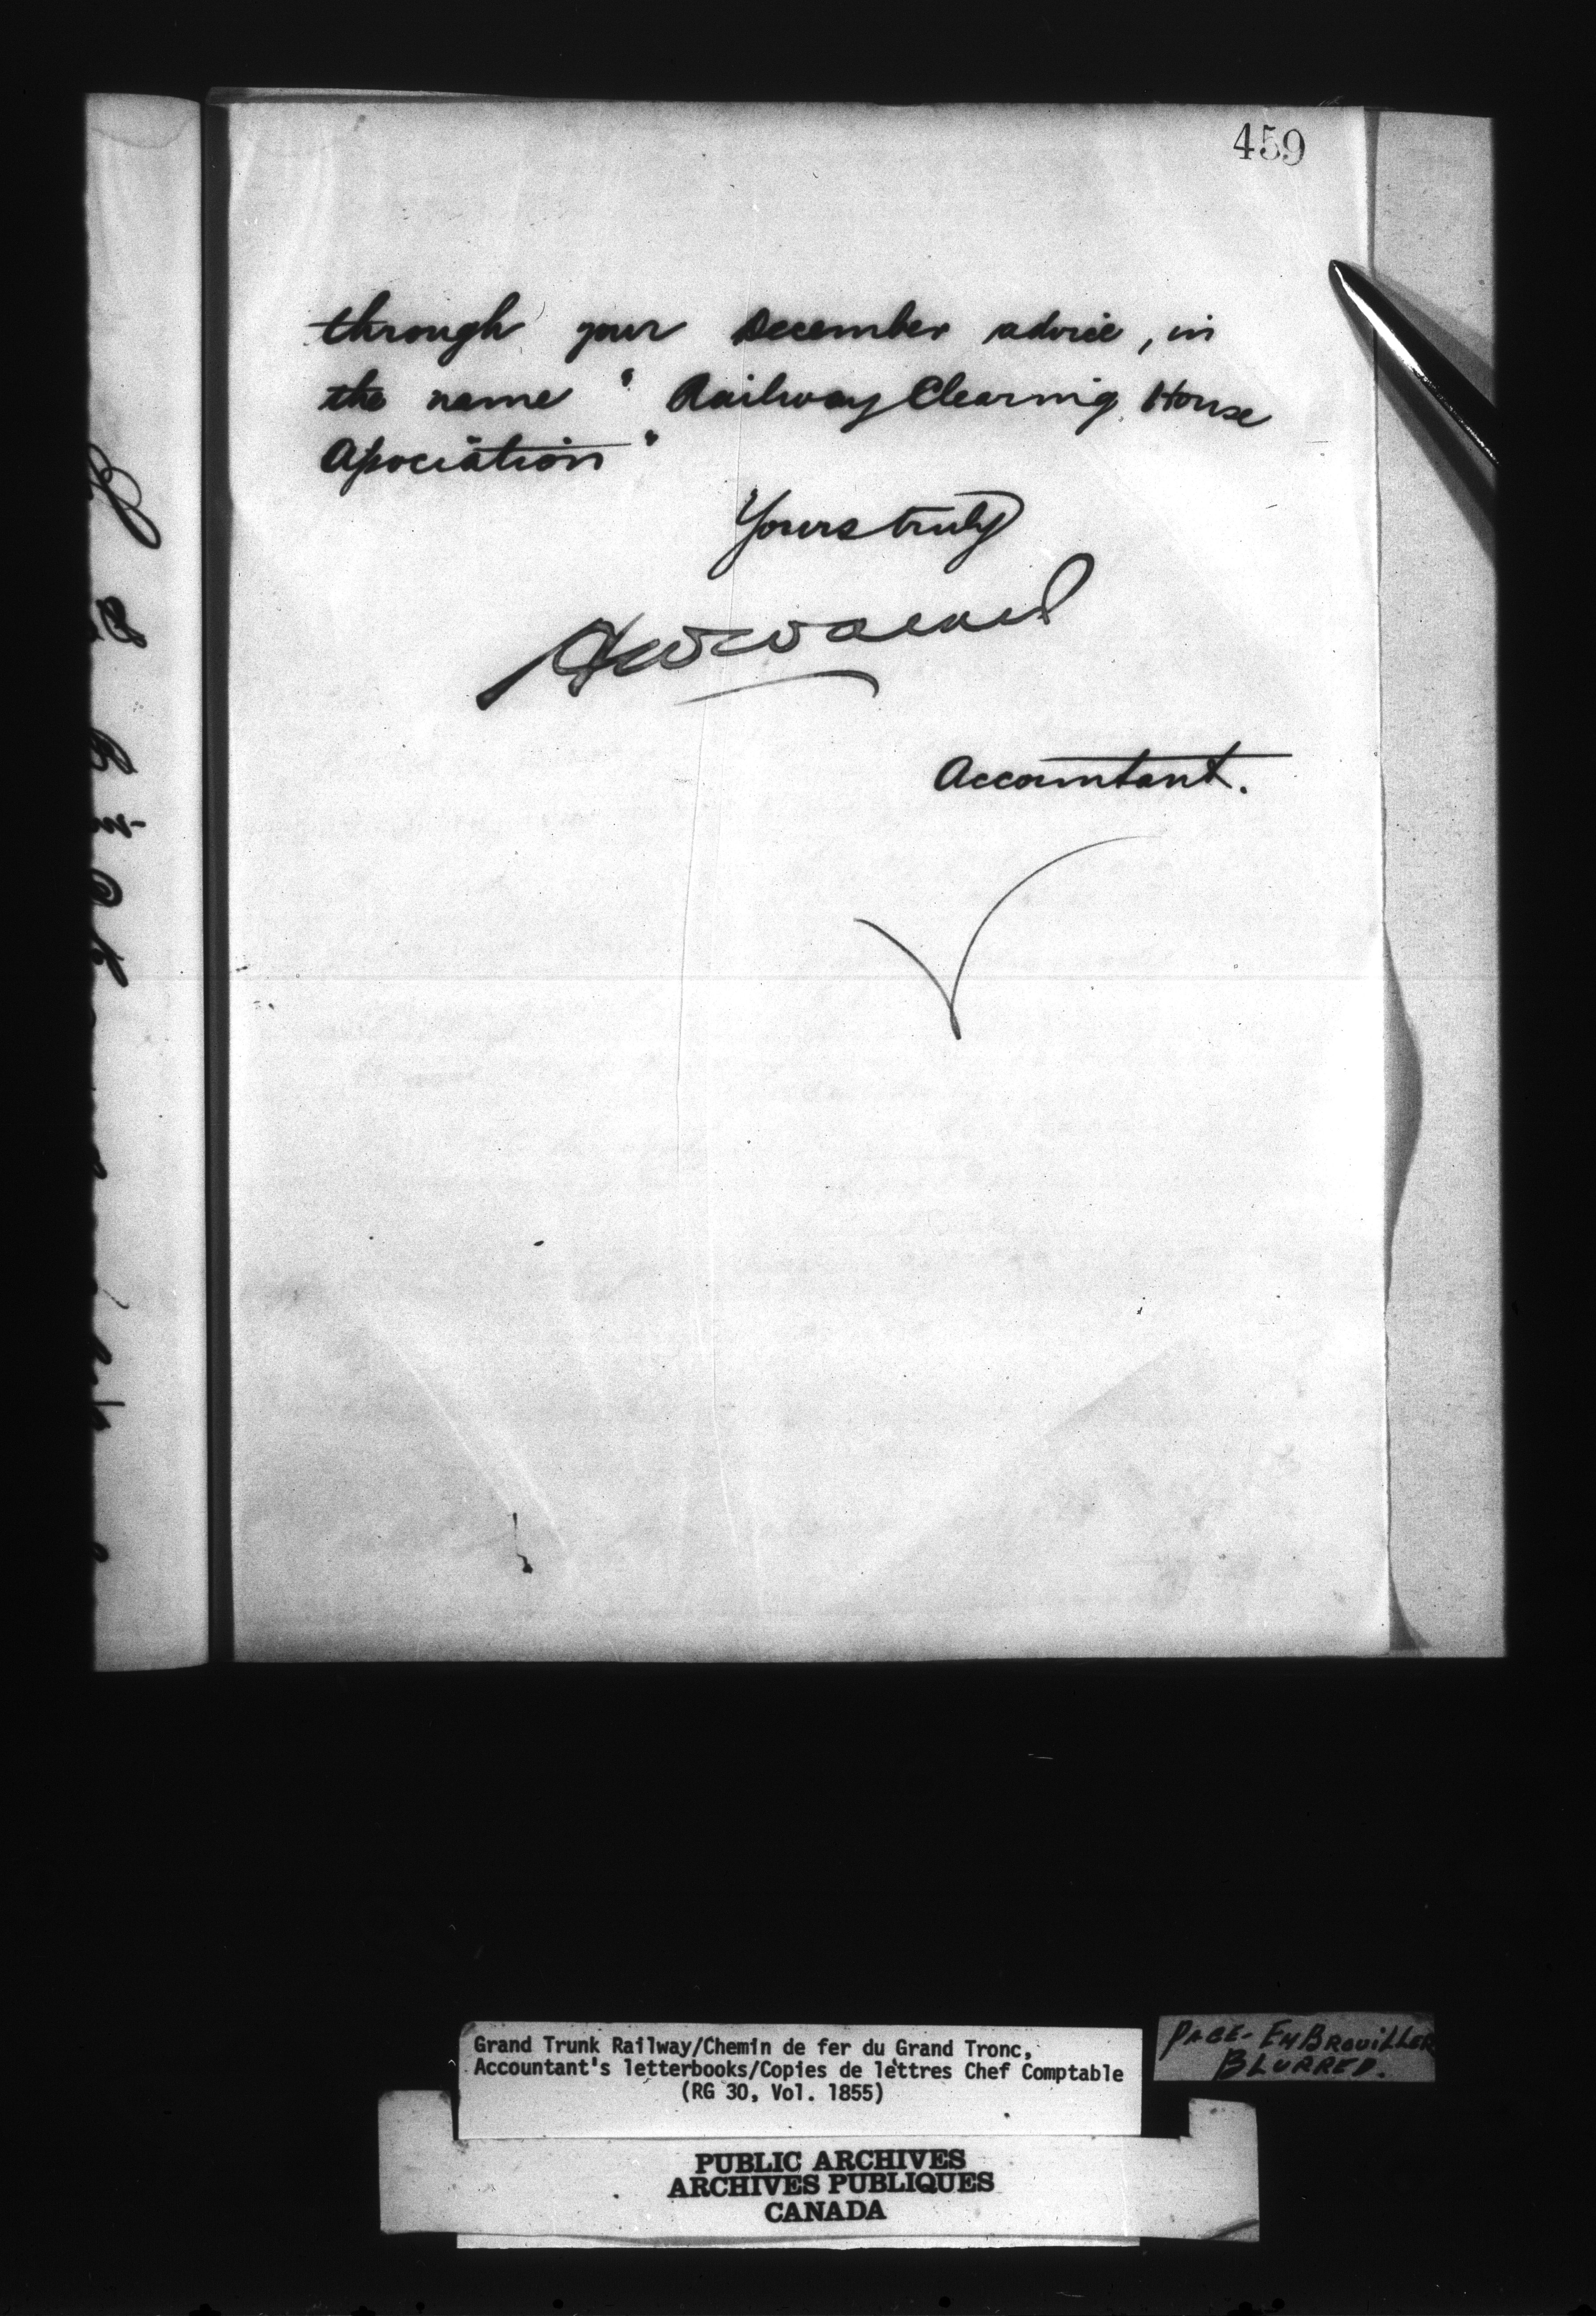 459
through your December advice, in
the name "Railway Clearing House
Association"
Yours truly
Accountant.
Grand Trunk Railway/Chemin de fer du Grand Tronc,
Accountant's letterbooks/Copies de lettres Chef Comptable
(RG 30, Vol. 1855)
PAGE - EMBROUILLER
BLURRED.
PUBLIC ARCHIVES
ARCHIVES PUBLIQUES
CANADA